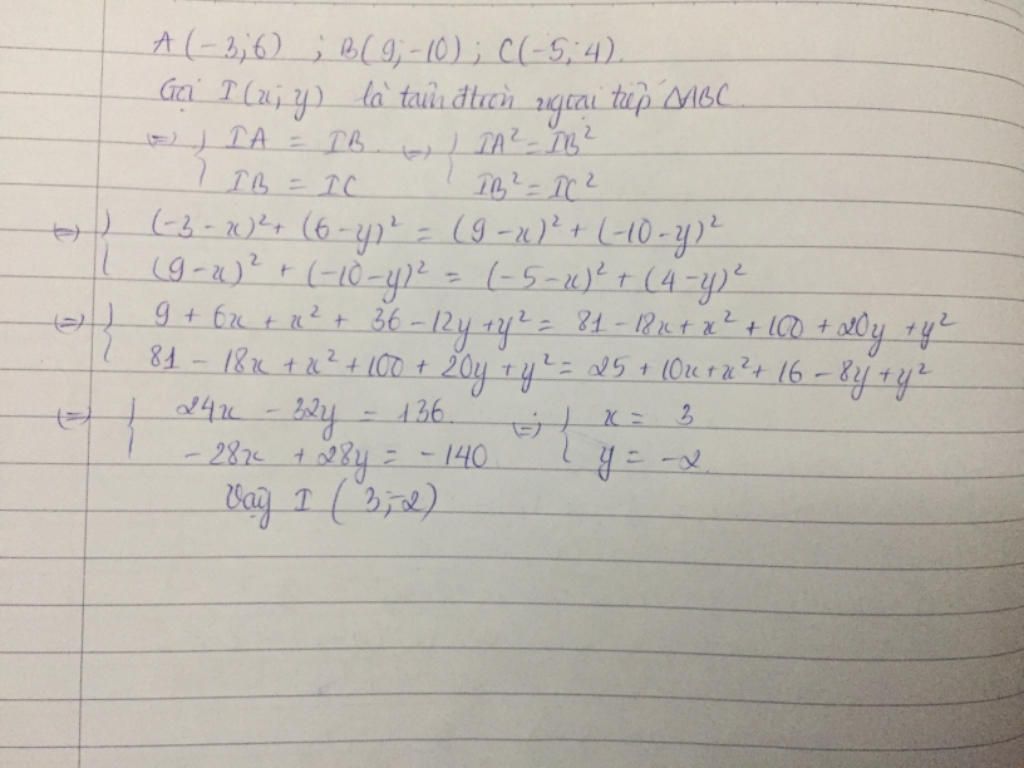 A(-3;6) ; B(9;-10) ; C(-5;4).
Gọi I(x;y) là tâm đtròn ngoại tiếp △ABC
=> { IA = IB <=> { IA² = IB²
IB = IC IB² = IC²
<=> { (-3-x)² + (6-y)² = (9-x)² + (-10-y)²
(9-x)² + (-10-y)² = (-5-x)² + (4-y)²
<=> { 9 + 6x + x² + 36 - 12y + y² = 81 - 18x + x² + 100 + 20y + y²
81 - 18x + x² + 100 + 20y + y² = 25 + 10x + x² + 16 - 8y + y²
<=> { 24x - 32y = 136 <=> { x = 3
-28x + 28y = -140 y = -2
Vậy I (3;-2)